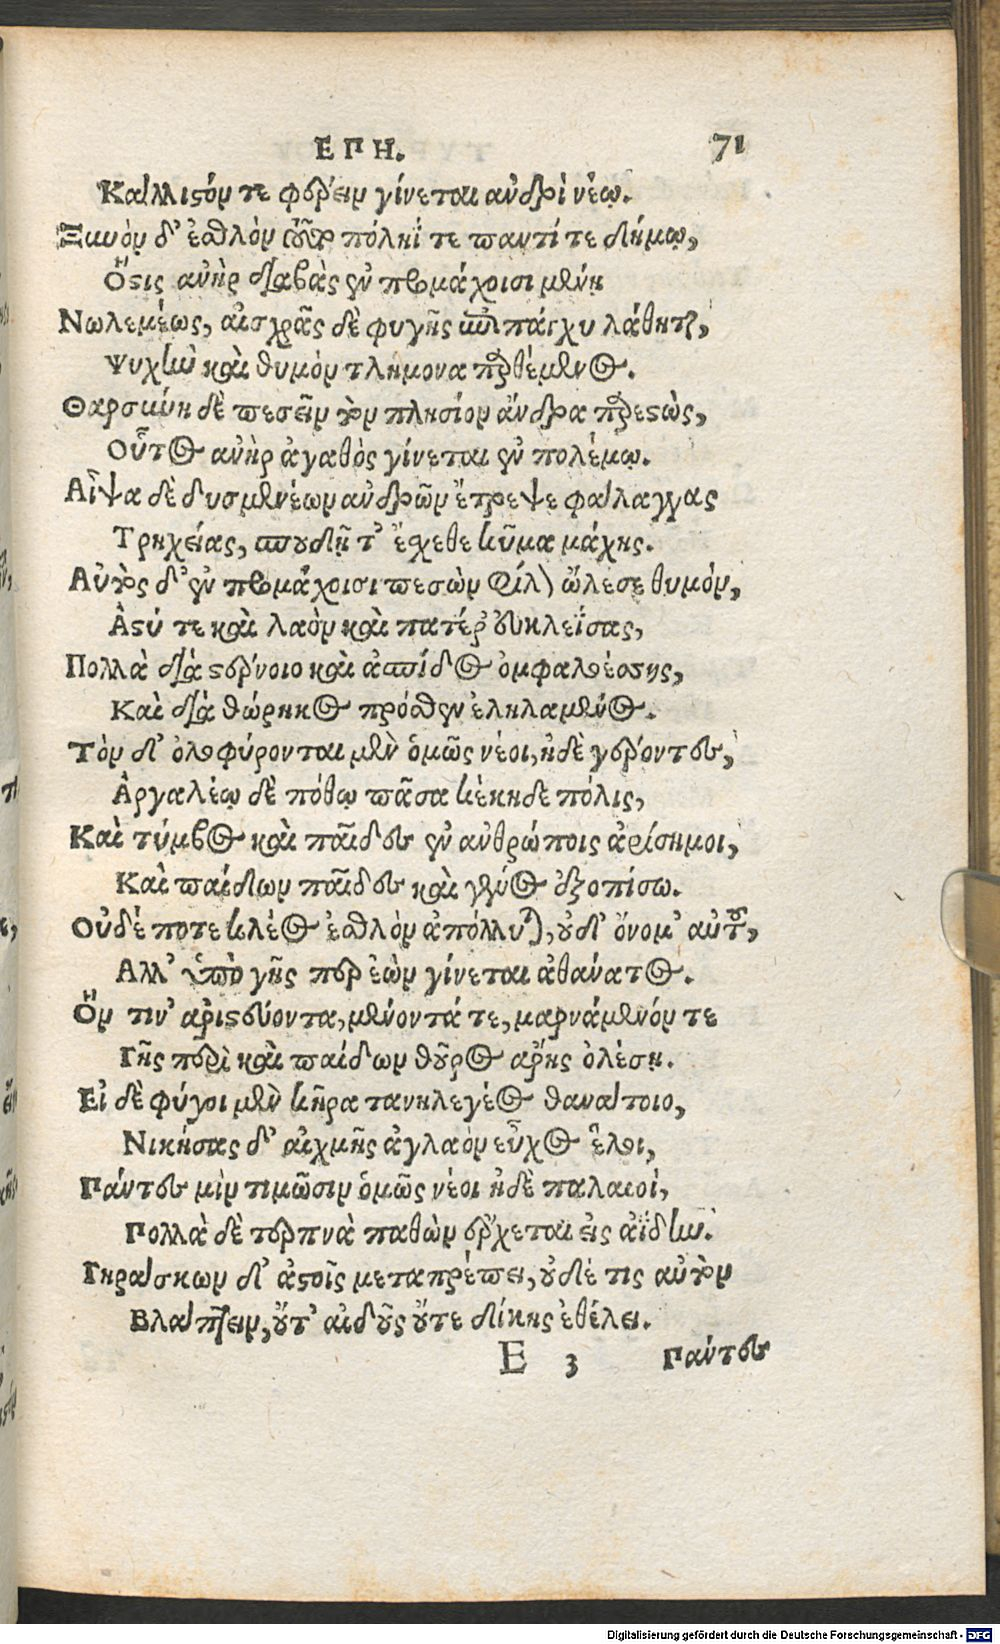 ΕΠΗ. 71
Κάλλιστόν τε φέρειν γίνεται ἀνδρὶ νέῳ.
Ξυνὸν δ' ἐσθλὸν τοῦτο πόληΐ τε παντί τε δήμῳ,
Ὅστις ἀνὴρ διαβὰς ἐν προμάχοισι μένῃ
Νωλεμέως, αἰσχρᾶς δὲ φυγῆς ἐπὶ πάγχυ λάθηται,
Ψυχὴν καὶ θυμὸν τλήμονα παρθέμενος.
Θαρσύνῃ δὲ πεσεῖν τὸν πλησίον ἄνδρα παρεστὼς,
Οὗτος ἀνὴρ ἀγαθὸς γίνεται ἐν πολέμῳ.
Αἶψα δὲ δυσμενέων ἀνδρῶν ἔτρεψε φάλαγγας
Τρηχείας, σπουδῇ τ' ἔσχεθε κῦμα μάχης.
Αὐτὸς δ' ἐν προμάχοισι πεσὼν φίλον ὤλεσε θυμὸν,
Ἄστύ τε καὶ λαὸν καὶ πατέρ' εὐκλεΐσας,
Πολλὰ διὰ στέρνοιο καὶ ἀσπίδος ὀμφαλοέσσης,
Καὶ διὰ θώρηκος πρόσθεν ἐληλαμένος.
Τὸν δ' ὀλοφύρονται μὲν ὁμῶς νέοι, ἠδὲ γέροντες,
Ἀργαλέῳ δὲ πόθῳ πᾶσα κέκηδε πόλις,
Καὶ τύμβος καὶ παῖδες ἐν ἀνθρώποις ἀρίσημοι,
Καὶ παίδων παῖδες καὶ γένος ἐξοπίσω.
Οὐδέ ποτε κλέος ἐσθλὸν ἀπόλλυται, οὐδ' ὄνομ' αὐτοῦ,
Ἀλλ' ὑπὸ γῆς περ ἐὼν γίνεται ἀθάνατος.
Ὅν τιν' ἀριστεύοντα, μένοντά τε, μαρνάμενόν τε
Γῆς περὶ καὶ παίδων θοῦρος ἄρης ὀλέσῃ.
Εἰ δὲ φύγοι μὲν κῆρα τανηλεγέος θανάτοιο,
Νικήσας δ' αἰχμῆς ἀγλαὸν εὖχος ἕλοι,
Πάντες μὶν τιμῶσιν ὁμῶς νέοι ἠδὲ παλαιοί,
Πολλὰ δὲ τερπνὰ παθὼν ἔρχεται εἰς ἀΐδην.
Γηράσκων δ' ἀστοῖς μεταπρέπει, οὐδέ τις αὐτὸν
Βλάπτειν, οὔτ' αἰδοῦς οὔτε δίκης ἐθέλει.
E 3 Πάντες
Digitalisierung gefördert durch die Deutsche Forschungsgemeinschaft - DFG